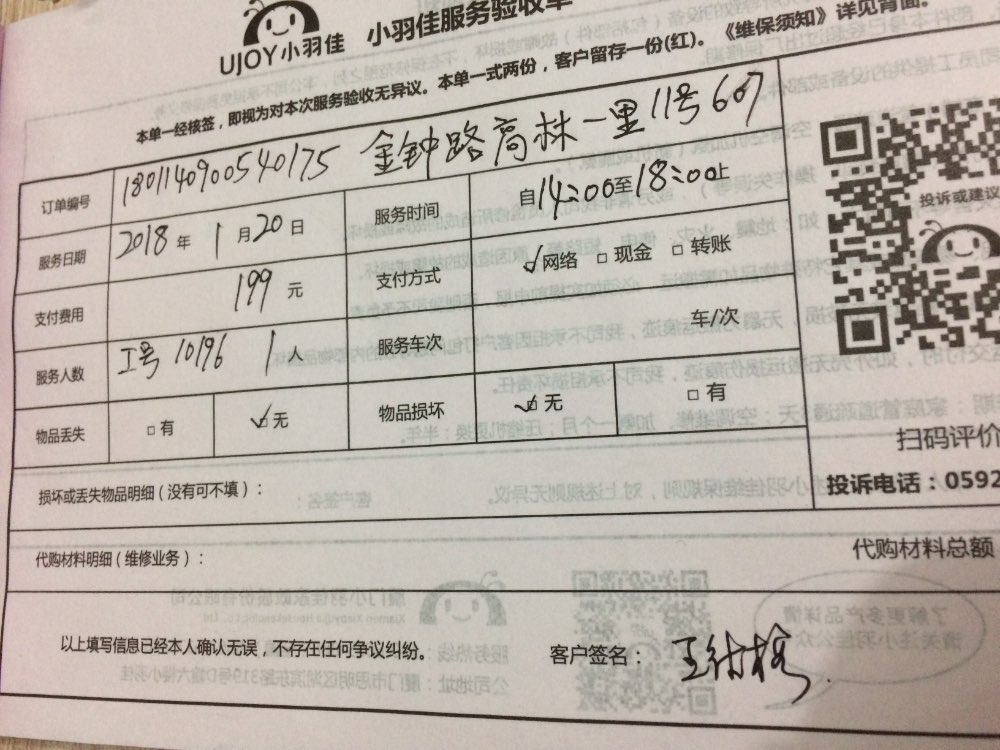 UJOY小羽佳 小羽佳服务验收单
本单一经核签，即视为对本次服务验收无异议。本单一式两份，客户留存一份(红)。《维保须知》详见背面。
订单编号 1801140900540175 金钟路高林一里11号607
服务日期 2018年1月20日 服务时间 自14:00至18:00止
支付费用 199元 支付方式 ☑网络 □现金 □转账
服务人数 工号10196 1人 服务车次 车/次
物品丢失 □有 ☑无 物品损坏 ☑无 □有
投诉或建议
扫码评价
投诉电话：0592
损坏或丢失物品明细（没有可不填）：
代购材料明细（维修业务）： 代购材料总额
以上填写信息已经本人确认无误，不存在任何争议纠纷。 客户签名：